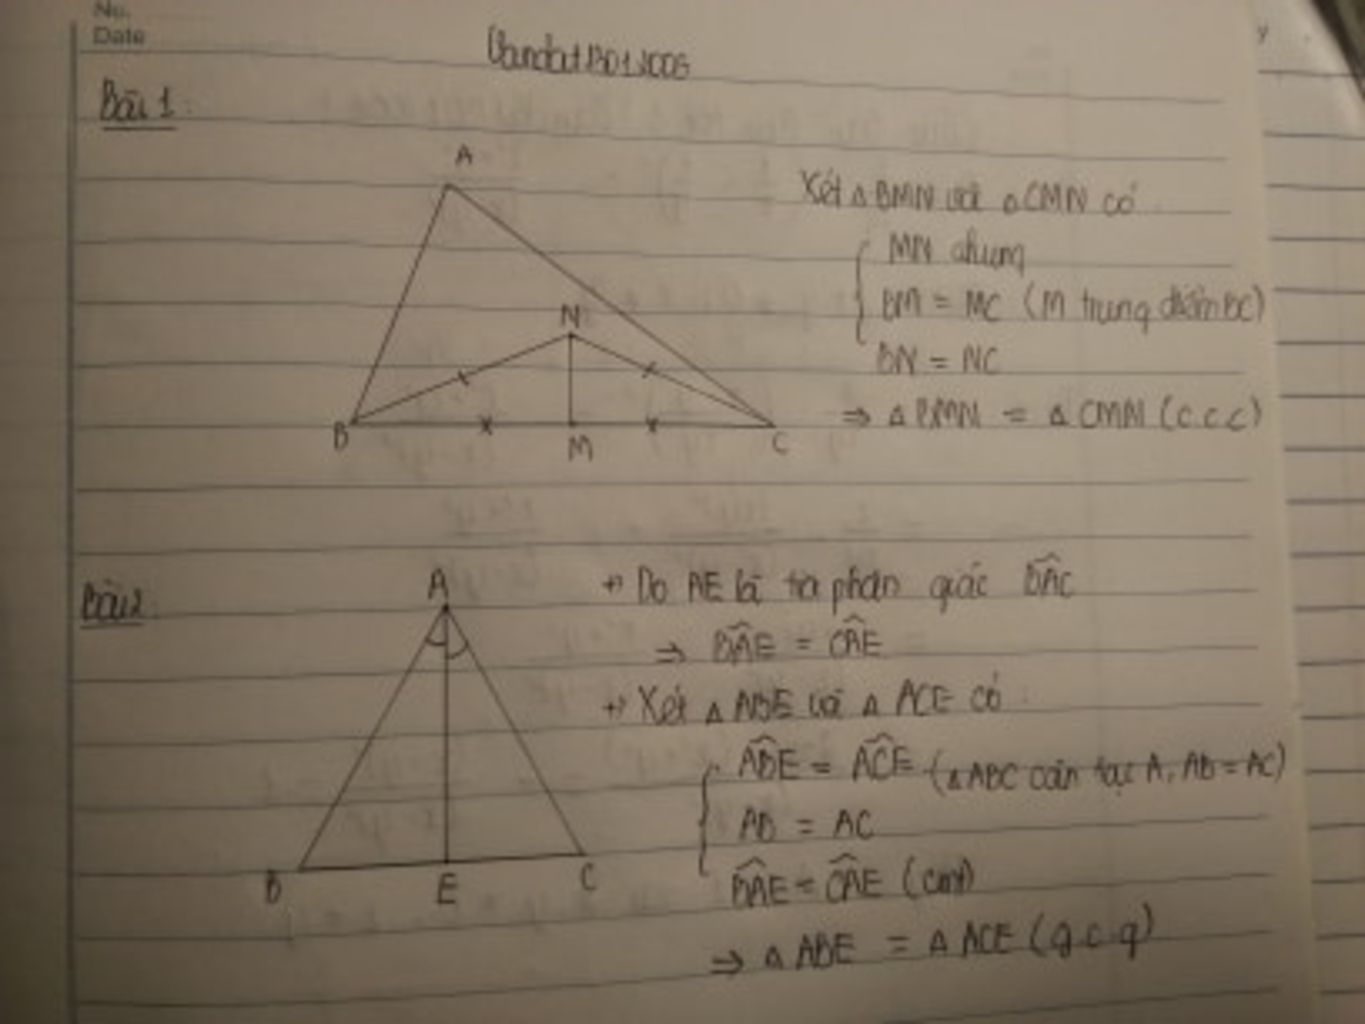 No.
Date
Vandat13012005
Bài 1:
A
Xét △BMN với △CMN có
MN chung
BM = MC (M trung điểm BC)
N
BN = NC
B
M
C
⇒ △BMN = △CMN (c.c.c)
Bài 2
A
+) Do AE là tia phân giác B̂AC
⇒ B̂AE = ĈAE
+) Xét △ABE với △ACE có:
ÂBE = ÂCE (△ABC cân tại A, AB = AC)
AB = AC
B
E
C
B̂AE = ĈAE (cmt)
⇒ △ABE = △ACE (g.c.g)